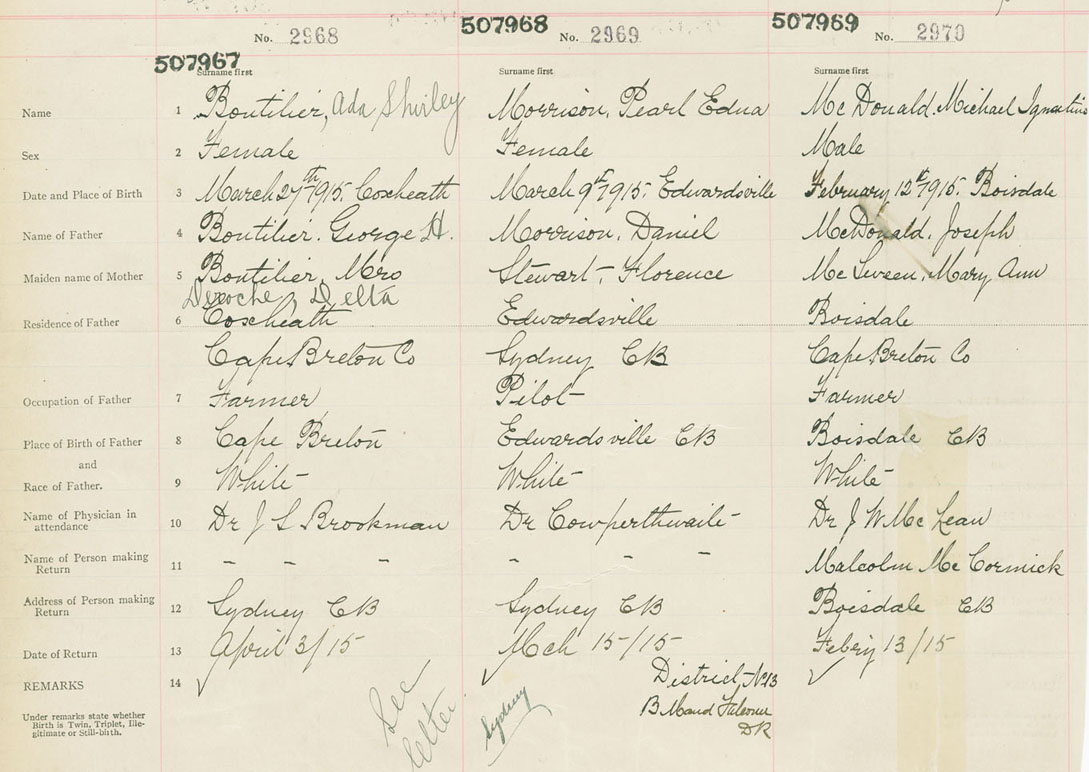 507967 No. 2968 507968 No. 2969 507969 No. 2970
Surname first Surname first Surname first
Name 1 Boutilier, Ada Shirley Morrison, Pearl Edna Mc Donald. Michael Ignatius
Sex 2 Female Female Male
Date and Place of Birth 3 March 27th 1915. Coxheath March 9th 1915. Edwardsville February 12th 1915. Boisdale
Name of Father 4 Boutilier. George H. Morrison, Daniel McDonald, Joseph
Maiden name of Mother 5 Boutilier, Mrs Stewart, Florence Mc Sween, Mary Ann
Deroche, Delta
Residence of Father 6 Coxheath Edwardsville Boisdale
Cape Breton Co Sydney CB Cape Breton Co
Occupation of Father 7 Farmer Pilot Farmer
Place of Birth of Father 8 Cape Breton Edwardsville CB Boisdale CB
and
Race of Father. 9 White White White
Name of Physician in attendance 10 Dr J S Brookman Dr Cowperthwaite Dr J W Mc Lean
Name of Person making Return 11 - - - - - - Malcolm Mc Cormick
Address of Person making Return 12 Sydney CB Sydney CB Boisdale CB
Date of Return 13 April 3/15 Mch 15/15 Febry 13/15
REMARKS 14 ✓ See letter ✓ Sydney District No 13 ✓
B Maud Falconer
DR
Under remarks state whether
Birth is Twin, Triplet, Ille-
gitimate or Still-birth.